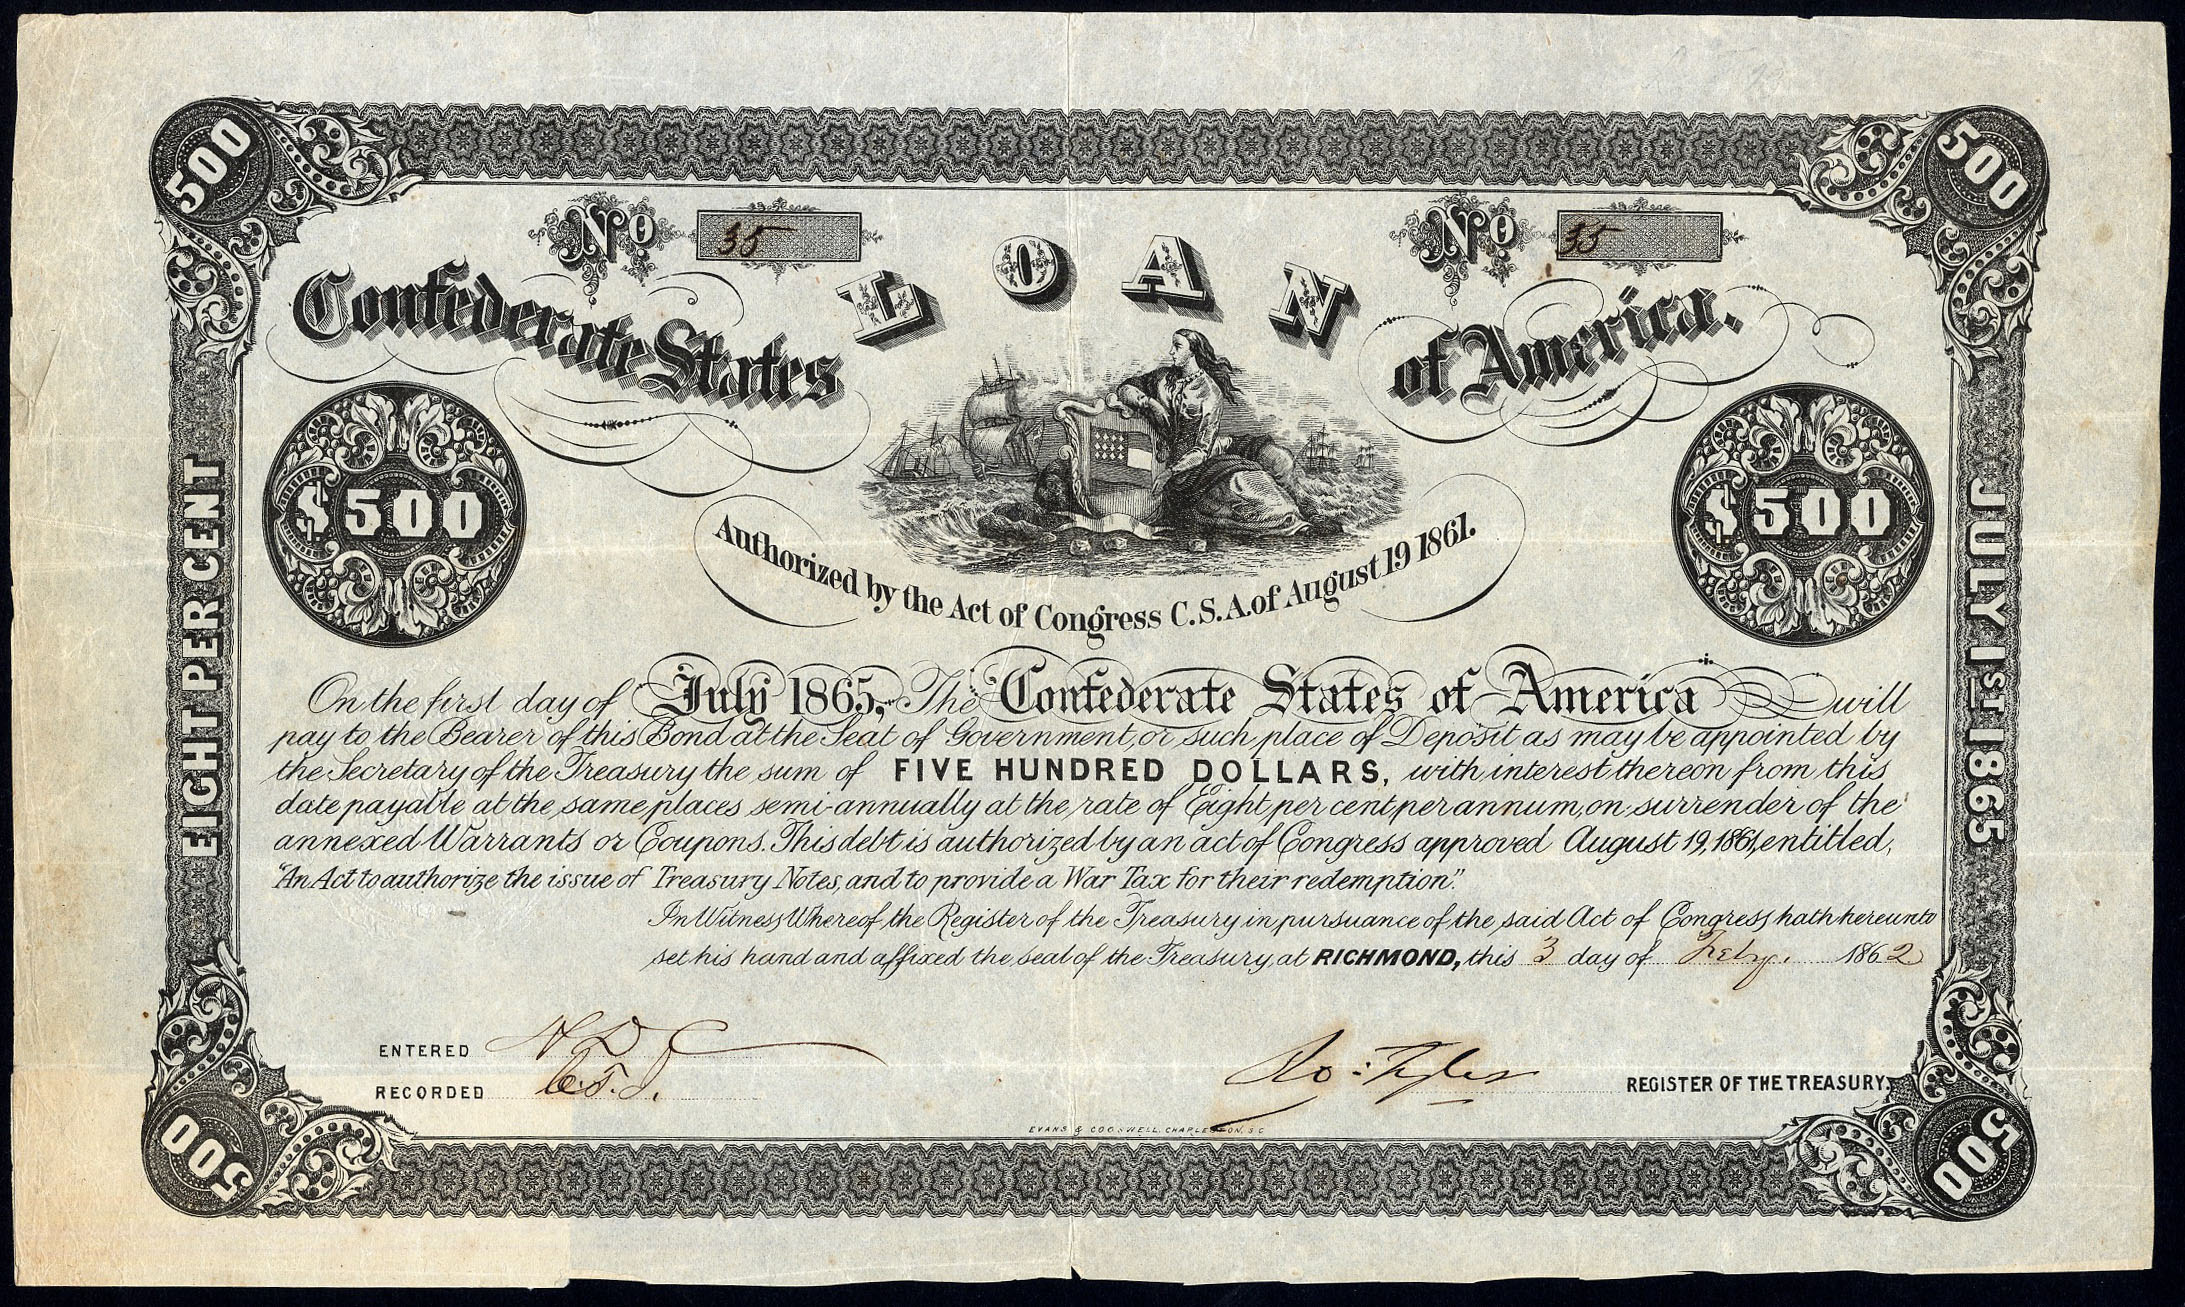 500
500
No 35
No 35
LOAN
Confederate States of America.
$500
$500
Authorized by the Act of Congress C.S.A. of August 19 1861.
EIGHT PER CENT
JULY 1ST 1865
On the first day of July 1865, The Confederate States of America will
pay to the Bearer of this Bond at the Seat of Government, or such place of Deposit as may be appointed by
the Secretary of the Treasury the sum of FIVE HUNDRED DOLLARS, with interest thereon from this
date payable at the same places semi-annually at the rate of Eight per cent per annum, on surrender of the
annexed Warrants or Coupons. This debt is authorized by an act of Congress approved August 19, 1861, entitled,
"An Act to authorize the issue of Treasury Notes, and to provide a War Tax for their redemption".
In Witness Whereof the Register of the Treasury in pursuance of the said Act of Congress hath hereunto
set his hand and affixed the seal of the Treasury, at RICHMOND, this 3 day of Feby. 1862
ENTERED
RECORDED C.T.J.
Ro: Tyler REGISTER OF THE TREASURY.
EVANS & COGSWELL, CHARLESTON, S C
500
500